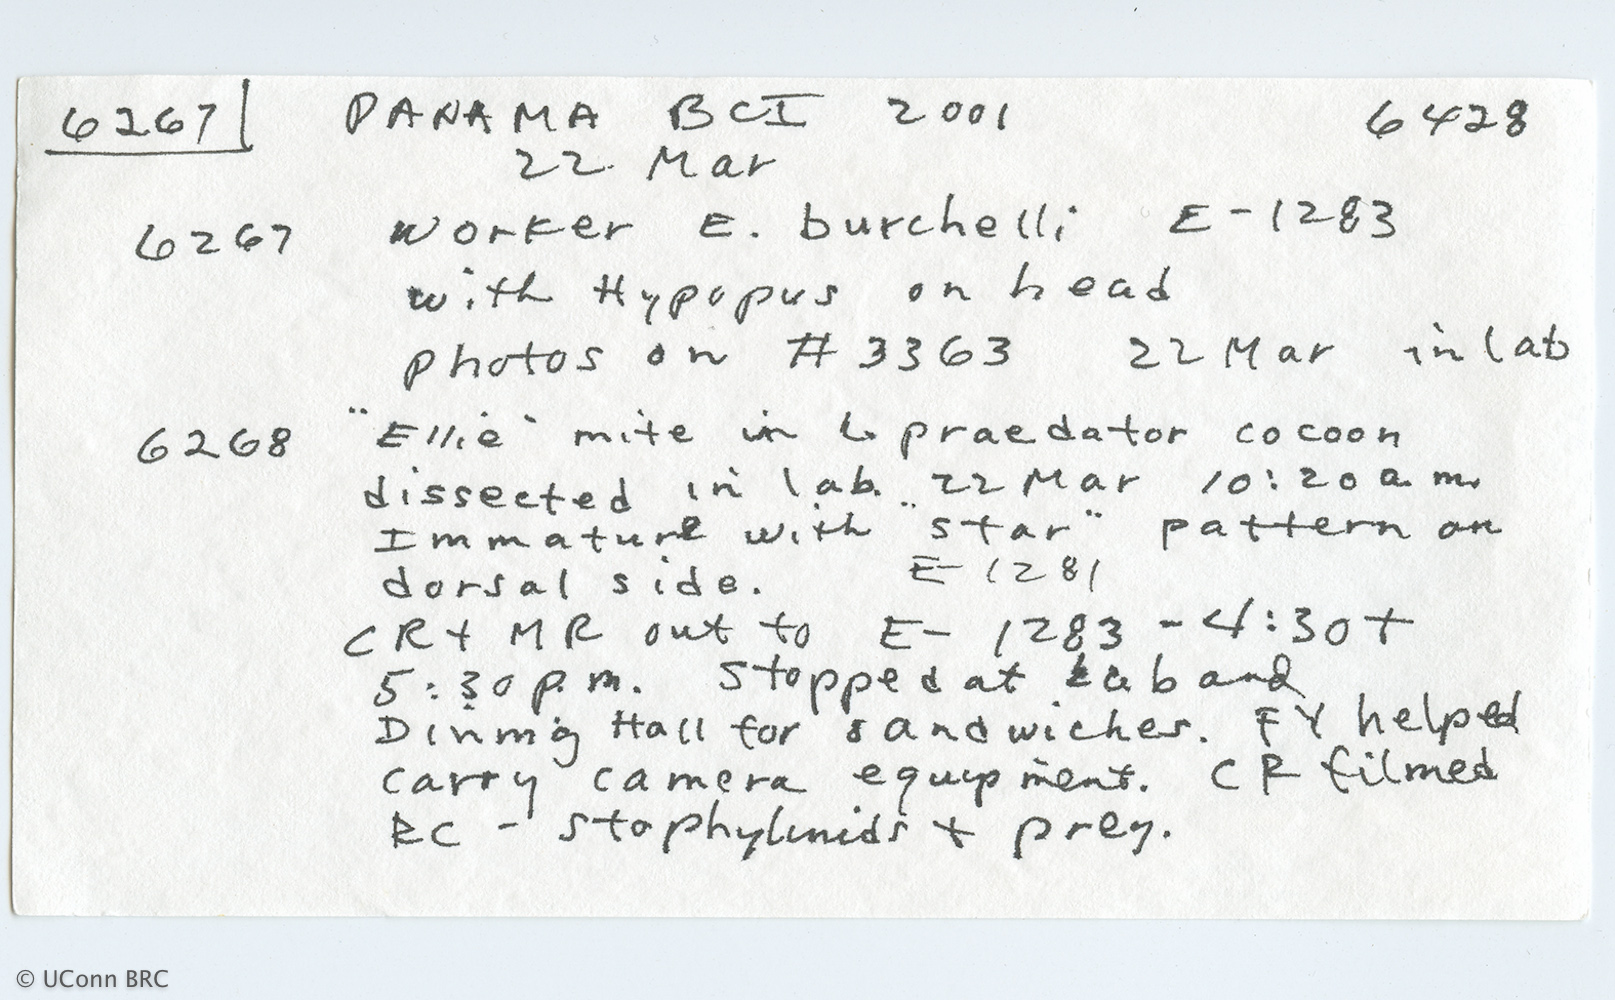 6267 PANAMA BCI 2001 6428
22 Mar
6267 Worker E. burchelli E-1283
with Hypopus on head
photos on # 3363 22 Mar in lab
6268 "Ellie" mite in L. praedator cocoon
dissected in lab. 22 Mar 10:20 a.m.
Immature with "star" pattern on
dorsal side. E-1281
CR + MR out to E-1283 - 4:30 +
5:30 p.m. Stopped at Lab and
Dining Hall for sandwiches. FY helped
carry camera equipment. CR filmed
RC - staphylinids + prey.
© UConn BRC